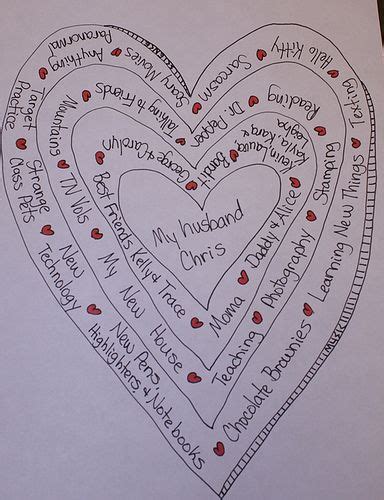 My husband
Chris
Mama
Daddy & Alice
Kevin, Laura,
Kayla, Kara, &
Bandit
George & Carolyn
Best Friends Kelly & Trace
Teaching
Photography
Stamping
Reading
Dr. Pepper
Talking to Friends
Mountains
TN Vols
My New House
Chocolate Brownies
Learning New Things
Texting
Hello Kitty
Sarcasm
Scary Movies
Anything
Paranormal
Target
Practice
Strange
Class Pets
New
Technology
New Pens
Highlighters & Notebooks
Music